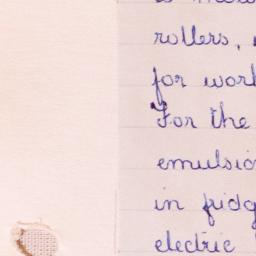 rollers,
for work
For the
emulsio
in fridg
electric